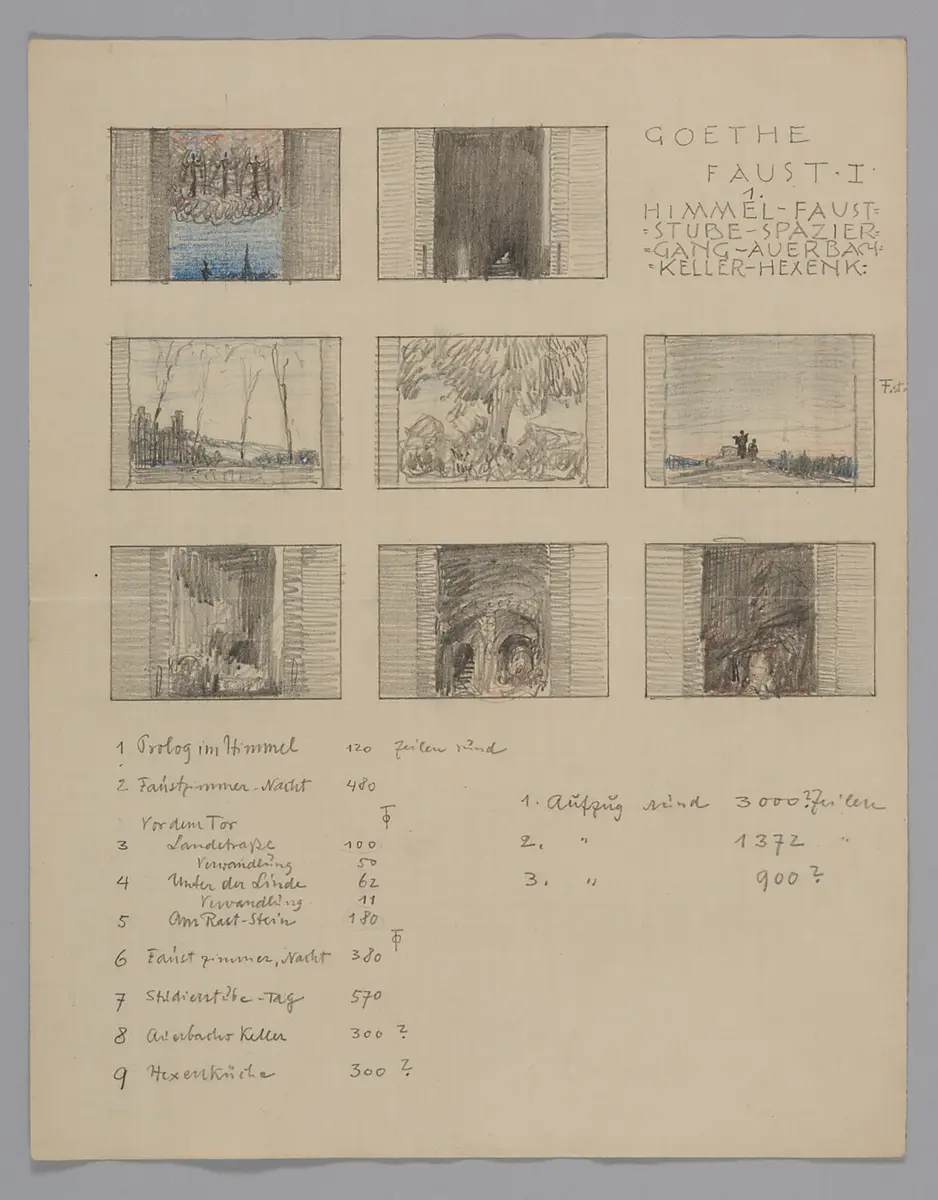 GOETHE
FAUST·I·
1.
HIMMEL-FAUST=
=STUBE-SPAZIER=
=GANG-AUERBACH=
=KELLER-HEXENK:
F.st.
1 Prolog im Himmel 120 Zeilen rund
2 Faustzimmer-Nacht 480
Vor dem Tor
3 Landstraße 100
Verwandlung 50
4 Unter der Linde 62
Verwandlung 11
5 Am Rast-Stein 180
6 Faustzimmer, Nacht 380
7 Studierstube-Tag 570
8 Auerbachs Keller 300 ?
9 Hexenküche 300 ?
1. Aufzug rund 3000? Zeilen
2. " 1372 "
3. " 900 ?